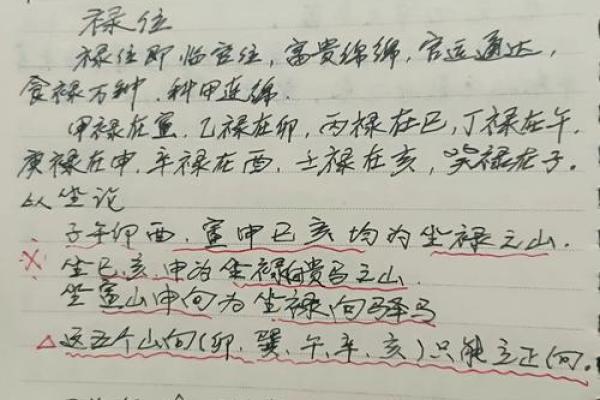 禄位
禄位即临官位，富贵绵绵，官运通达，
食禄万钟，科甲连绵．
甲禄在寅，乙禄在卯，丙禄在巳，丁禄在午．
庚禄在申．辛禄在酉．壬禄在亥，癸禄在子．
以坐论
子午卯酉．寅申巳亥均为坐禄之山．
坐巳、亥．申为坐禄向贵马之山
坐寅山申向为坐禄向驿马
△这五个山向(卯、巽、午、辛、亥)只能立正向．